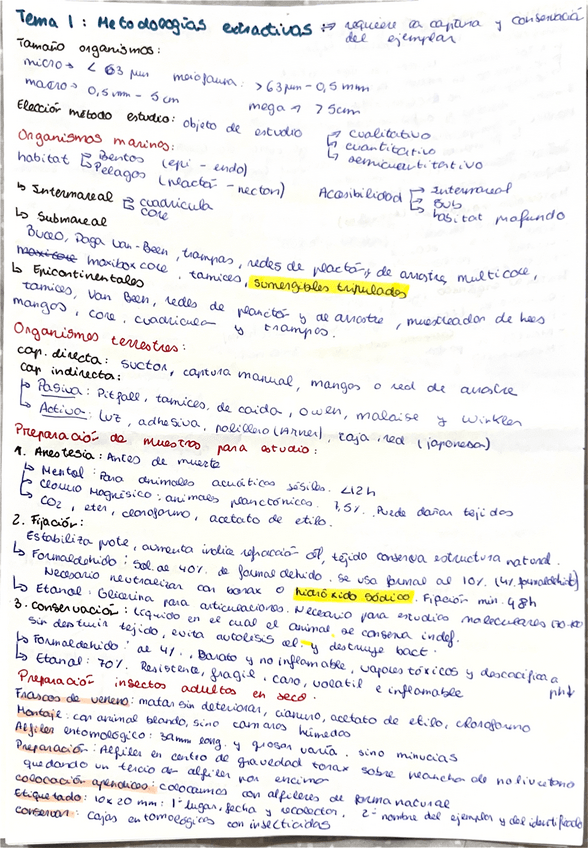 Tema 1: Metodologías extractivas → requiere la captura y conservación
del ejemplar
Tamaño organismos:
micro → < 63 µm meiofauna: > 63 µm - 0,5 mm
macro → 0,5 mm - 5 cm mega → > 5 cm
Elección método estudio: objeto de estudio → cualitativo
→ cuantitativo
→ semicuantitativo
Organismos marinos:
habitat → Bentos (epi - endo)
→ Pelagos (plactó - necton)
Accesibilidad → Intermareal
→ sub
→ habitat profundo
↳ Intermareal → cuadrícula
→ core
↳ Submareal
Buceo, Draga Van-Been, trampas, redes de plactón y de arrastre, multicore,
maxibox core, tamices, sumergibles tripulados
↳ Epicontinentales
tamices, Van Been, redes de plancton y de arrastre, muestreador de hess
mangos, core, cuadricula y trampos.
Organismos terrestres:
cap. directa: suctor, captura manual, mangos o red de arrastre
cap indirecta:
↳ Pasiva: Pitfall, tamices, de caida, owen, malaise y Winkler
↳ Activa: Luz, adhesiva, polillero (Arner), caja, red (japonesa)
Preparación de muestras para estudio:
1. Anestesia: Antes de muerte
↳ Mentol: Para animales acuáticos sésiles. <12h
↳ Cloruro Magnésico: animales planctónicos. 7,5%. Puede dañar tejidos
↳ CO2, eter, cloroformo, acetato de etilo.
2. Fijación:
Estabiliza prote, aumenta indice refracción, tejido conserva estructura natural.
↳ Formaldehido: Sol. al 40% de formaldehido. Se usa formal al 10% (4% formaldehid)
Necesario neutralizar con borax o hidróxido sódico. Fijación min. 48h
↳ Etanol: Glicerina para articulaciones. Necesario para estudios moleculares 70-100
3. Conservación: Líquido en el cual el animal se conserva indef.
Sin destruir tejido, evita autolisis cel. y destruye bact.
↳ Formaldehido: al 4%. Barato y no inflamable, vapores tóxicos y descalcifica
ph↓
↳ Etanol: 70%. Resistente, fragil, caro, volatil e inflamable
Preparación insectos adultos en seco.
Frascos de veneno: matar sin deteriorar, cianuro, acetato de etilo, cloroformo
Montaje: con animal blando, sino camaras húmedas
Alfiler entomológico: 38mm long. y grosor varía. sino minucias
Preparación: Alfiler en centro de gravedad torax sobre plancha de poliuretano
quedando un tercio de alfiler por encima
colocación apendices: colocamos con alfileres de forma natural
Etiquetado: 10x20 mm: 1ª lugar, fecha y recolector. 2ª nombre del ejemplar y del identificado
conservar: cajas entomológicas con insecticidas